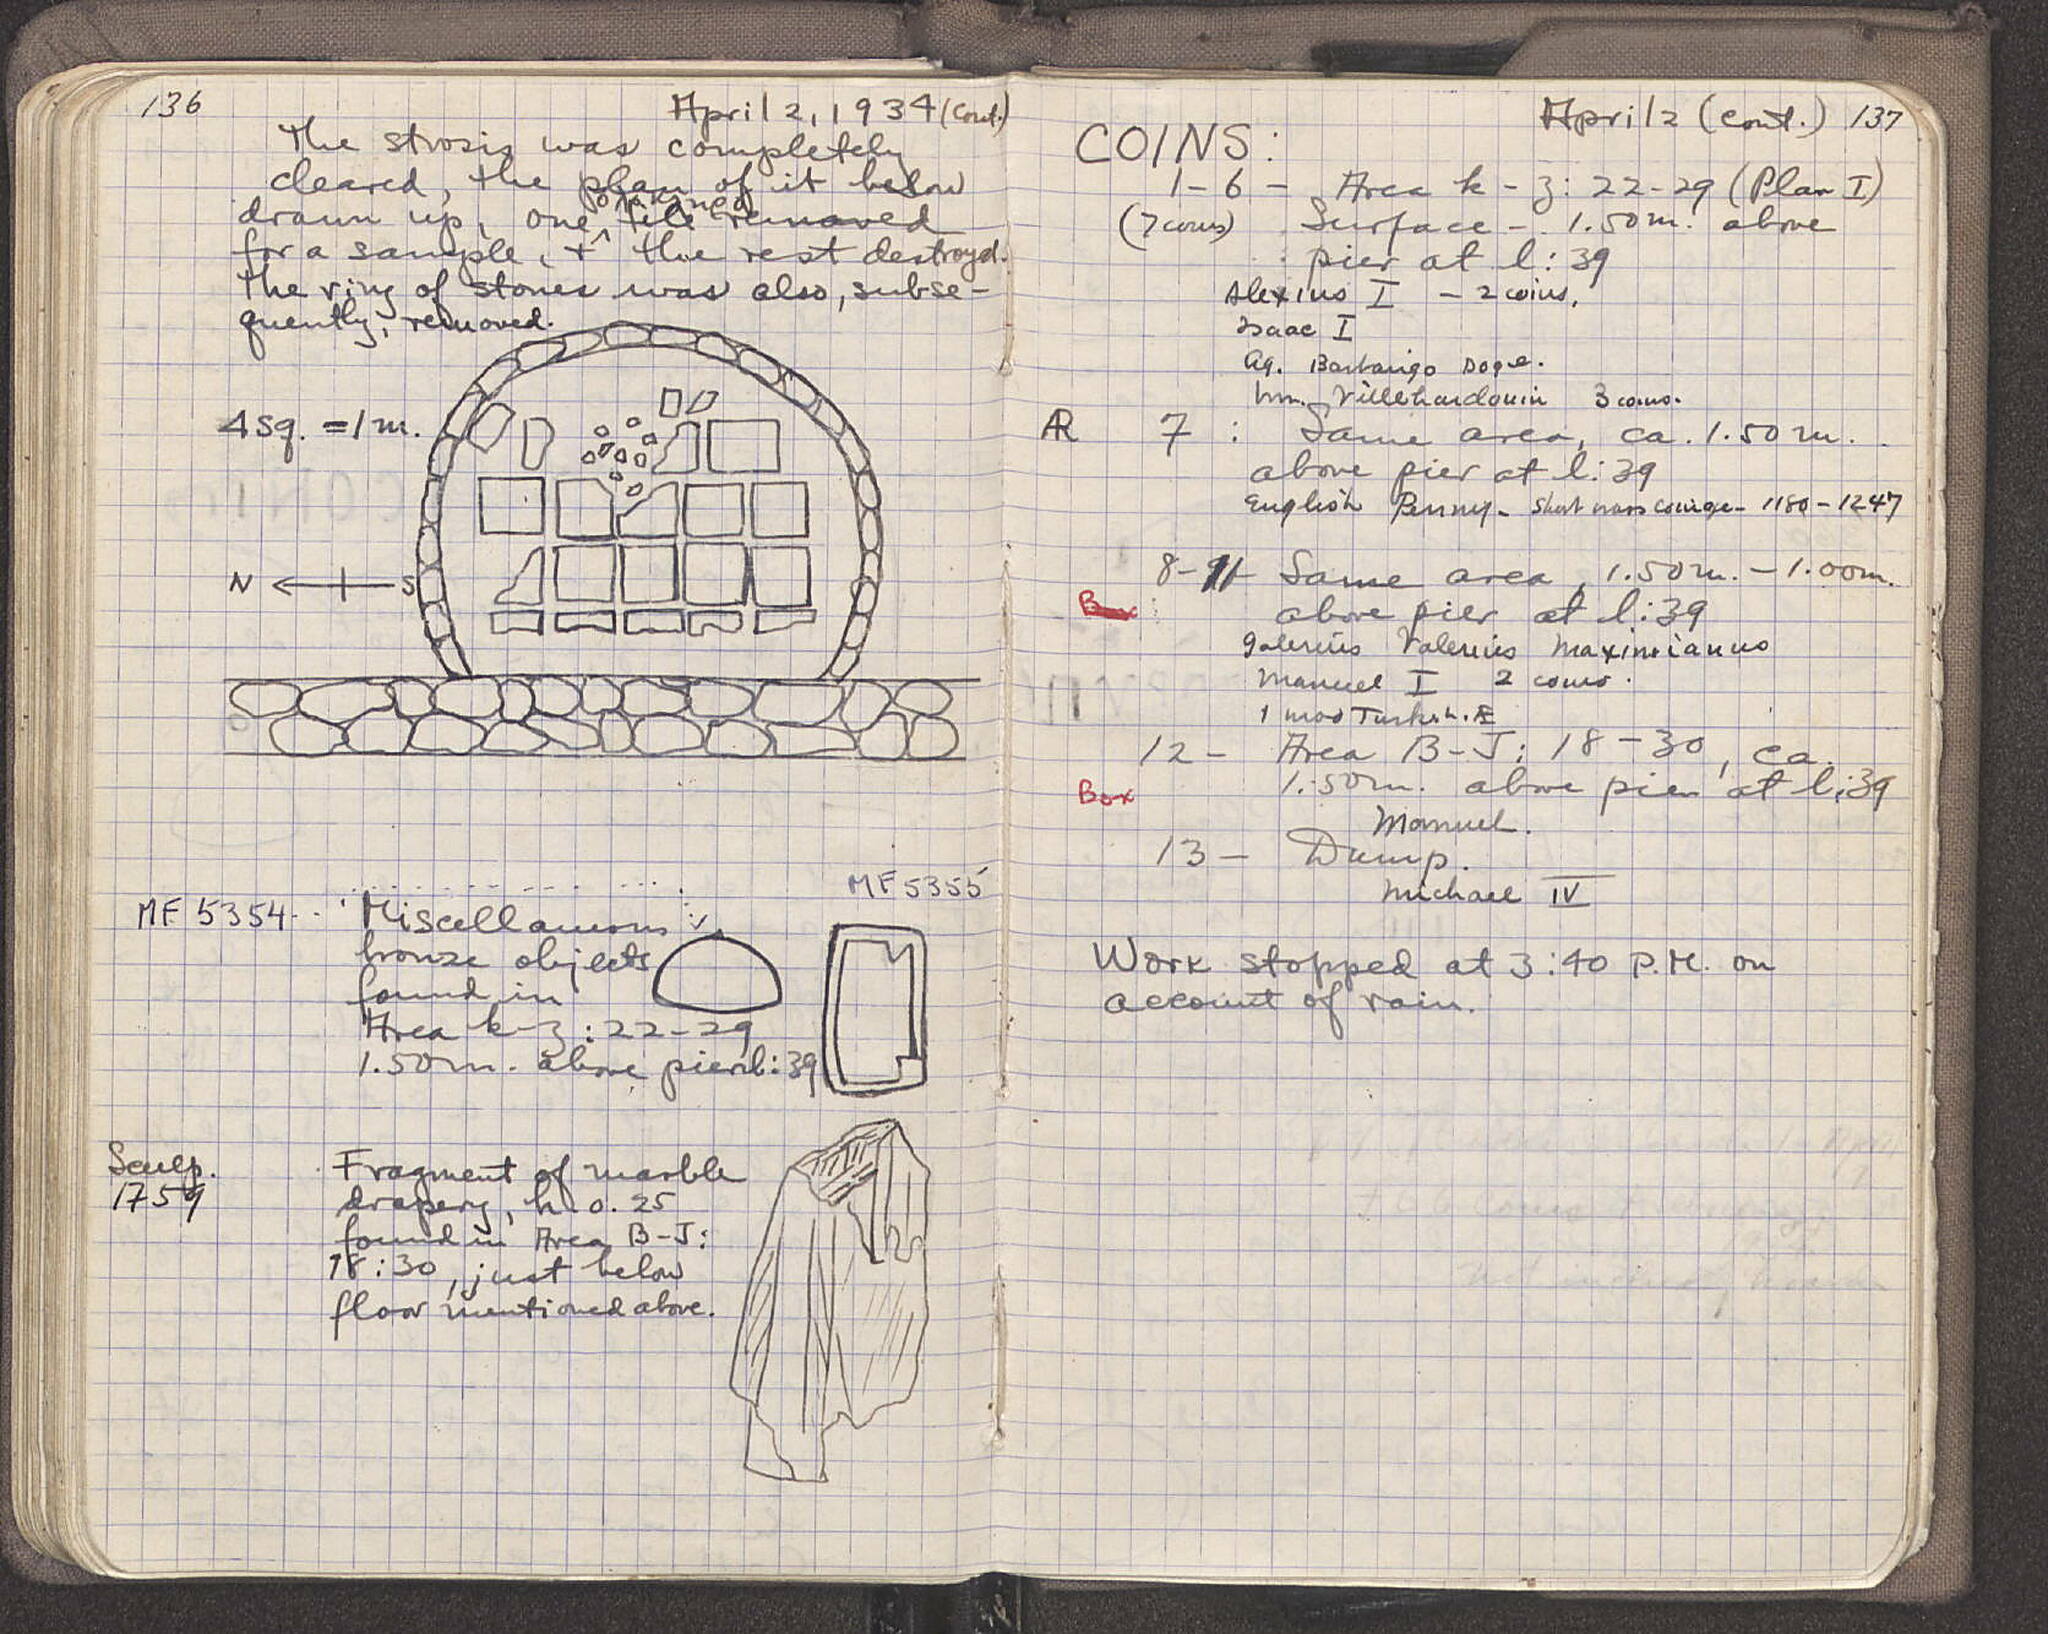 136
April 2, 1934 (Cont.)
The strosis was completely
cleared, the plan of it below
drawn up, one tile removed
obtained
for a sample, & the rest destroyed.
The ring of stones was also, subse-
quently, removed.
4 sq. = 1 m.
N S
MF 5355
MF 5354
Miscellaneous
bronze objects
found in
Area k-z : 22-29
1.50 m. above pier l:39
Sculp.
1759
Fragment of marble
drapery, h. 0.25
found in Area B-J:
18:30, just below
floor mentioned above.
April 2 (cont.) 137
COINS:
1-6 - Area k-z: 22-29 (Plan I)
(7 coins) Surface - 1.50 m. above
pier at l:39
Alexius I - 2 coins.
Isaac I
Ag. Barbarigo Doge.
Wm. Villehardouin 3 coins.
AR 7 : Same area, ca. 1.50 m.
above pier at l:39
English Penny - Short cross coinage - 1180-1247
8-11 Same area, 1.50 m. - 1.00 m.
Box above pier at l:39
Galerius Valerius Maximianus
Manuel I 2 coins.
1 mod Turkish. Æ
12 - Area B-J: 18-30, ca.
Box 1.50 m. above pier at l:39
Manuel.
13 - Dump.
Michael IV
Work stopped at 3:40 P.M. on
account of rain.